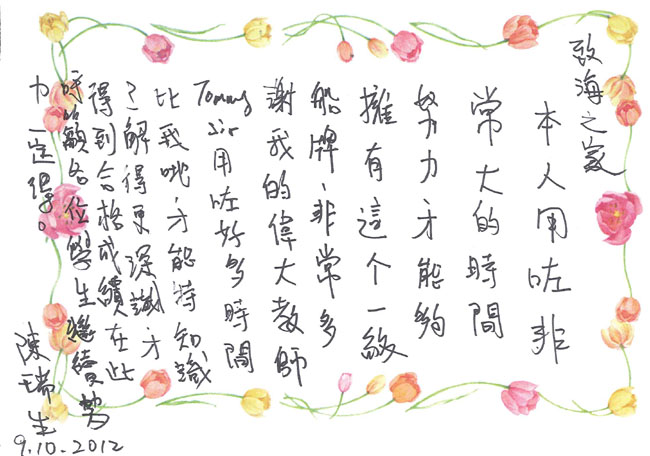 致海之家
本人用咗非
常大的時間
努力才能夠
擁有這个一級
船牌、非常多
謝我的偉大教師
Tommy sir用咗好多時間
比我哋才能特知識
了解得更深識才
得到合格成績在此
時願各位學生繼續努
力一定得。
陳瑞生
9.10.2012